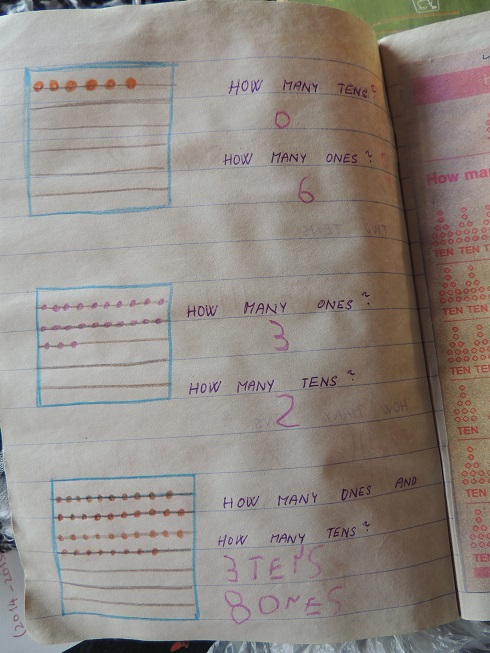 HOW MANY TENS?
0
HOW MANY ONES?
6
HOW MANY ONES?
3
HOW MANY TENS?
2
HOW MANY ONES AND
HOW MANY TENS?
3 TENS
8 ONES
How ma
TEN TEN TEN
TEN TEN
TEN TEN
TEN